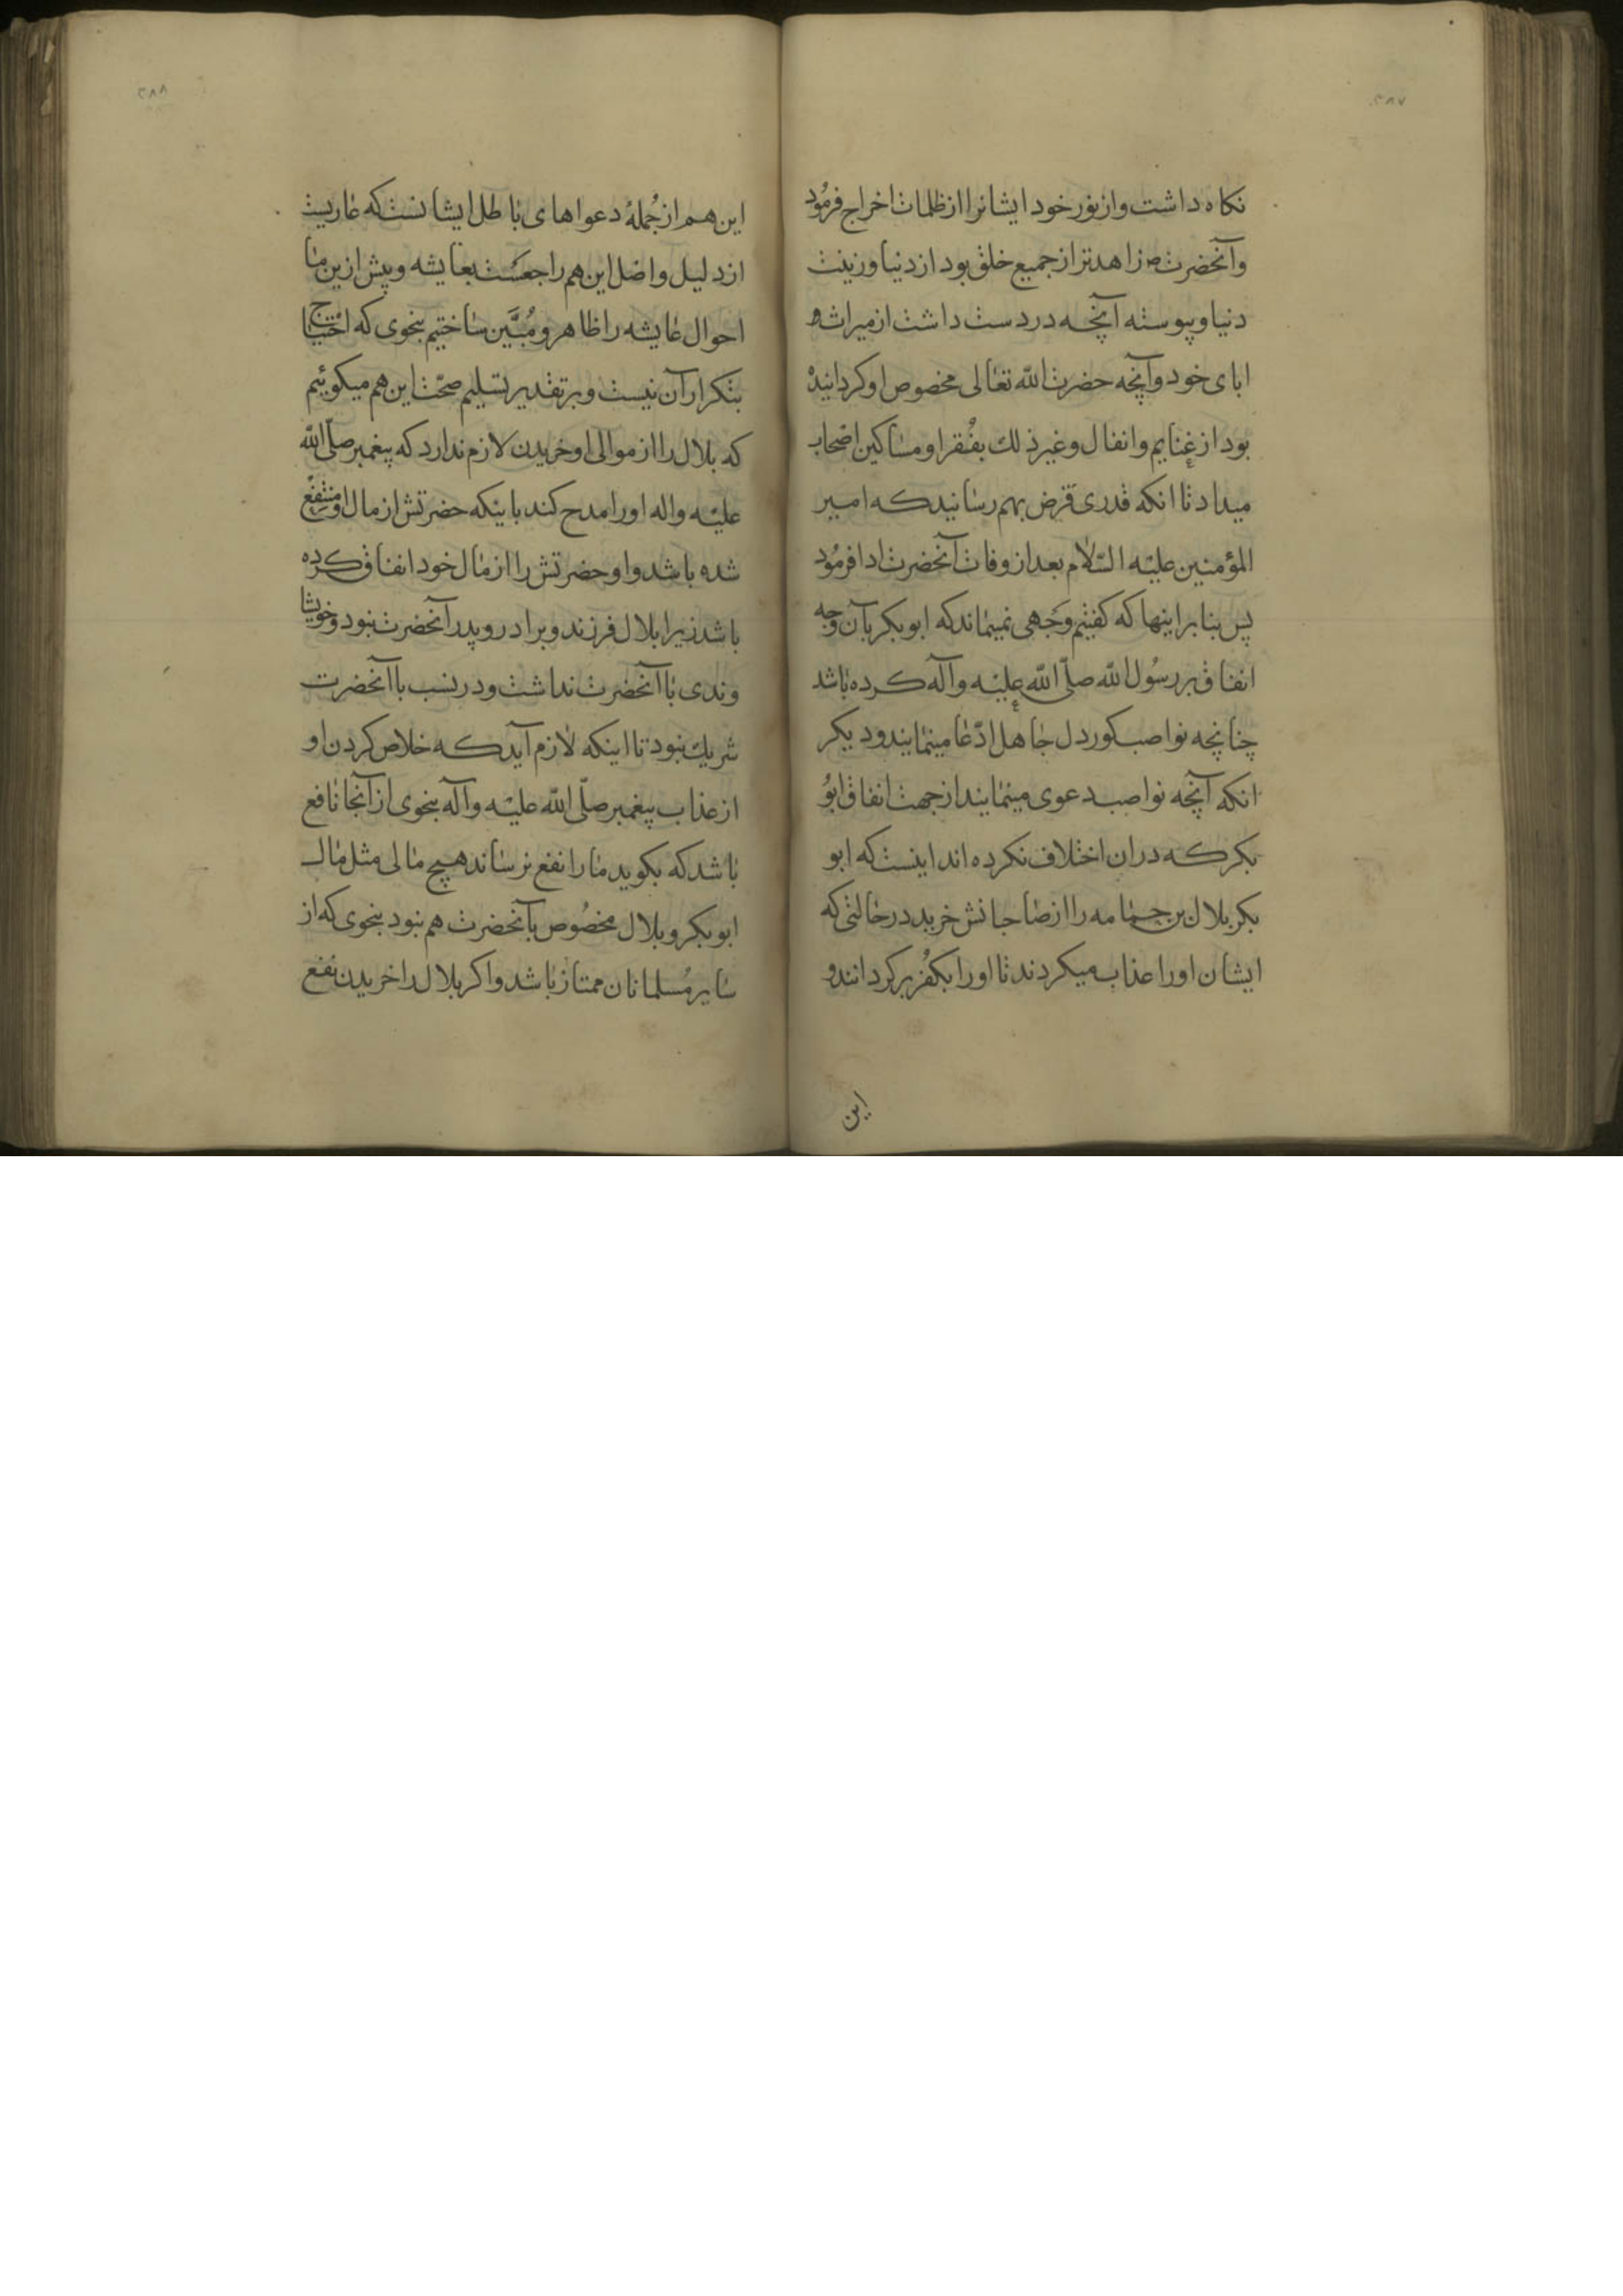 ۲۸۷
نکاه داشت و از نور خود ایشانرا از ظلمات اخراج فرمُود
و آنحضرت ص زاهدتر از جمیع خلق بود از دنیا و زینت
دنیا و پیوسته آنچه در دست داشت از میراث
ابای خود و آنچه حضرت اللّه تعالی مخصوص او کردانیده
بود از غنایم و انفال و غیر ذلك بفُقرا و مساکین اصحاب
میداد تا انکه قدری قرض بهم رسانید که امیر
المؤمنین علیْه السّلام بعد از وفات آنحضرت ادا فرمُود
پس بنا بر اینها که کفتیم وَجهی نمیماند که ابو بکر بآن وجه
انفاق بر رسُول اللّه صلّی اللّه علیْه وآله کرده باشد
چنانچه نواصب کور دل جاهل ادّعا مینمایند و دیکر
انکه آنچه نواصب دعوی مینمایند از جهت انفاق ابوُ
بکر که دران اختلاف نکرده اند اینست که ابو
بکر بلال بن جمامه را از صاحبانش خرید در حالتی که
ایشان اورا عذاب میکردند تا اورا بکفُر برکردانند و
این
۲۸۸
این هم از جُملهٔ دعواهای باطل ایشانست که عاریست
از دلیل و اصل این هم راجعَست بعایشه و پیش ازین ما
احوال عایشه را ظاهر و مُبَیَّن ساختیم بنحوی که احتیاج
بتکرار آن نیست و بر تقدیر تسلیم صحّت این هم میکوئیم
که بلال را از موالی او خریدن لازم ندارد که پیغمبر صلّی اللّه
علیْه واله اورا مدح کند باینکه حضرتش از مال او منتفِع
شده باشد و او حضرتش را از مال خود انفاق کرده
باشد زیرا بلال فرزند و برادر و پدر آنحضرت نبود و خویشا
وندی با آنحضرت نداشت و در نسب با آنحضرت
شریك نبود تا اینکه لازم آید که خلاص کردن او
از عذاب پیغمبر صلّی اللّه علیْه وآله بنحوی از آنجا نافع
باشد که بکوید ما را نفع نرساند هیچ مالی مثل مال
ابو بکر و بلال مخصُوص بآنحضرت هم نبود بنحوی که از
سایر مُسلمانان ممتاز باشد و اکر بلال را خریدن نفع